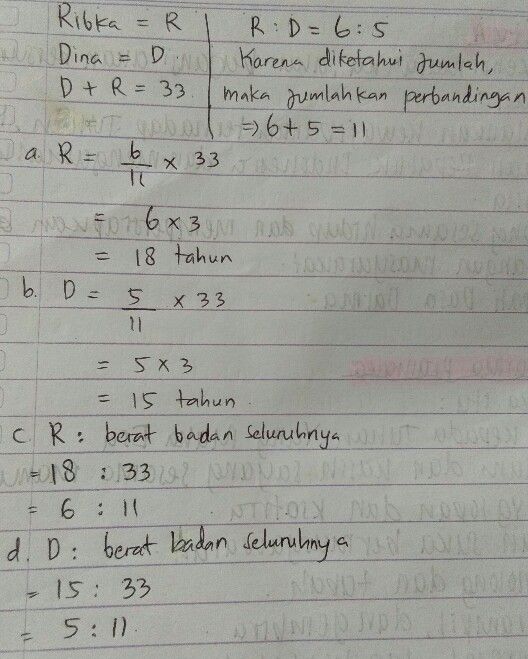 Ribka = R
Dina = D
D + R = 33
R : D = 6 : 5
Karena diketahui Jumlah,
maka Jumlahkan perbandingan
⇒ 6 + 5 = 11
a. R = 6/11 × 33
= 6 × 3
= 18 tahun
b. D = 5/11 × 33
= 5 × 3
= 15 tahun
c. R : berat badan seluruhnya
= 18 : 33
= 6 : 11
d. D : berat badan seluruhnya
= 15 : 33
= 5 : 11